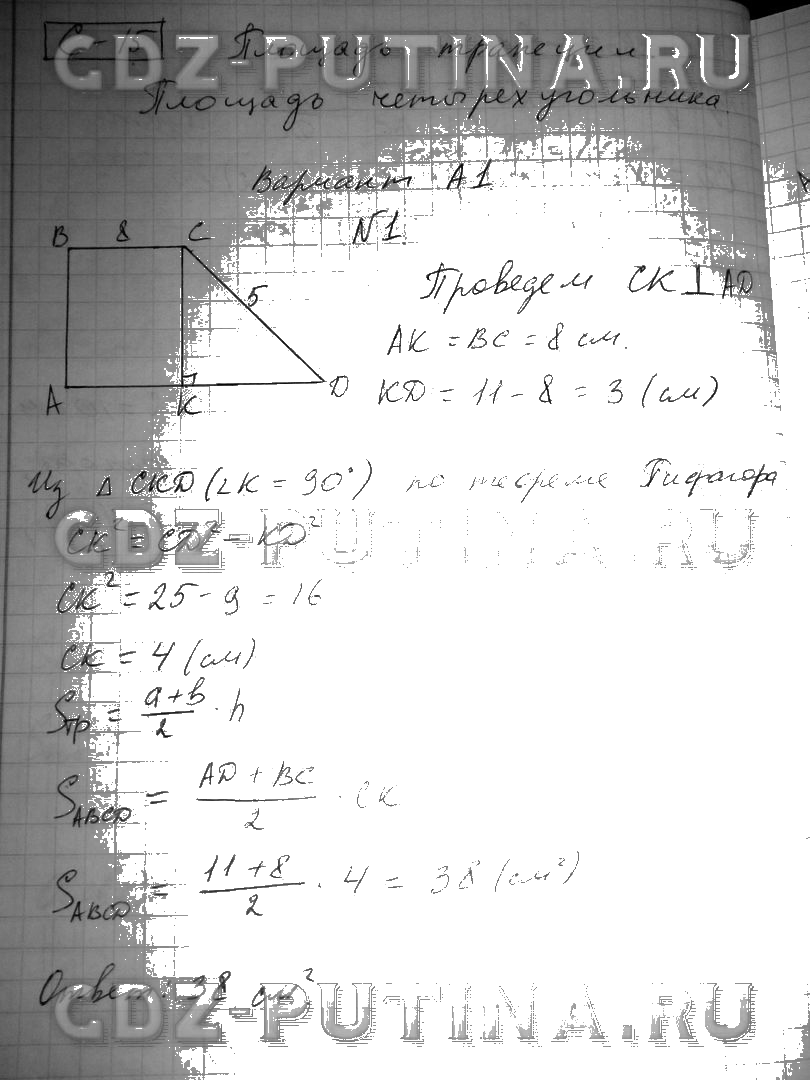 С-15 Площадь трапеции
Площадь четырехугольника.
GDZ-PUTINA.RU
Вариант А1
N1.
B 8 C
5
A K D
Проведем CK⊥AD
AK = BC = 8 см.
KD = 11 - 8 = 3 (см)
Из △ CKD (∠K = 90°) по теореме Пифагора
CK² = CD² - KD²
GDZ-PUTINA.RU
CK² = 25 - 9 = 16
CK = 4 (см)
Sтр = a+b/2 · h
S_ABCD = AD + BC/2 · CK
S_ABCD = 11 + 8/2 · 4 = 38 (см²)
Ответ: 38 см²
GDZ-PUTINA.RU